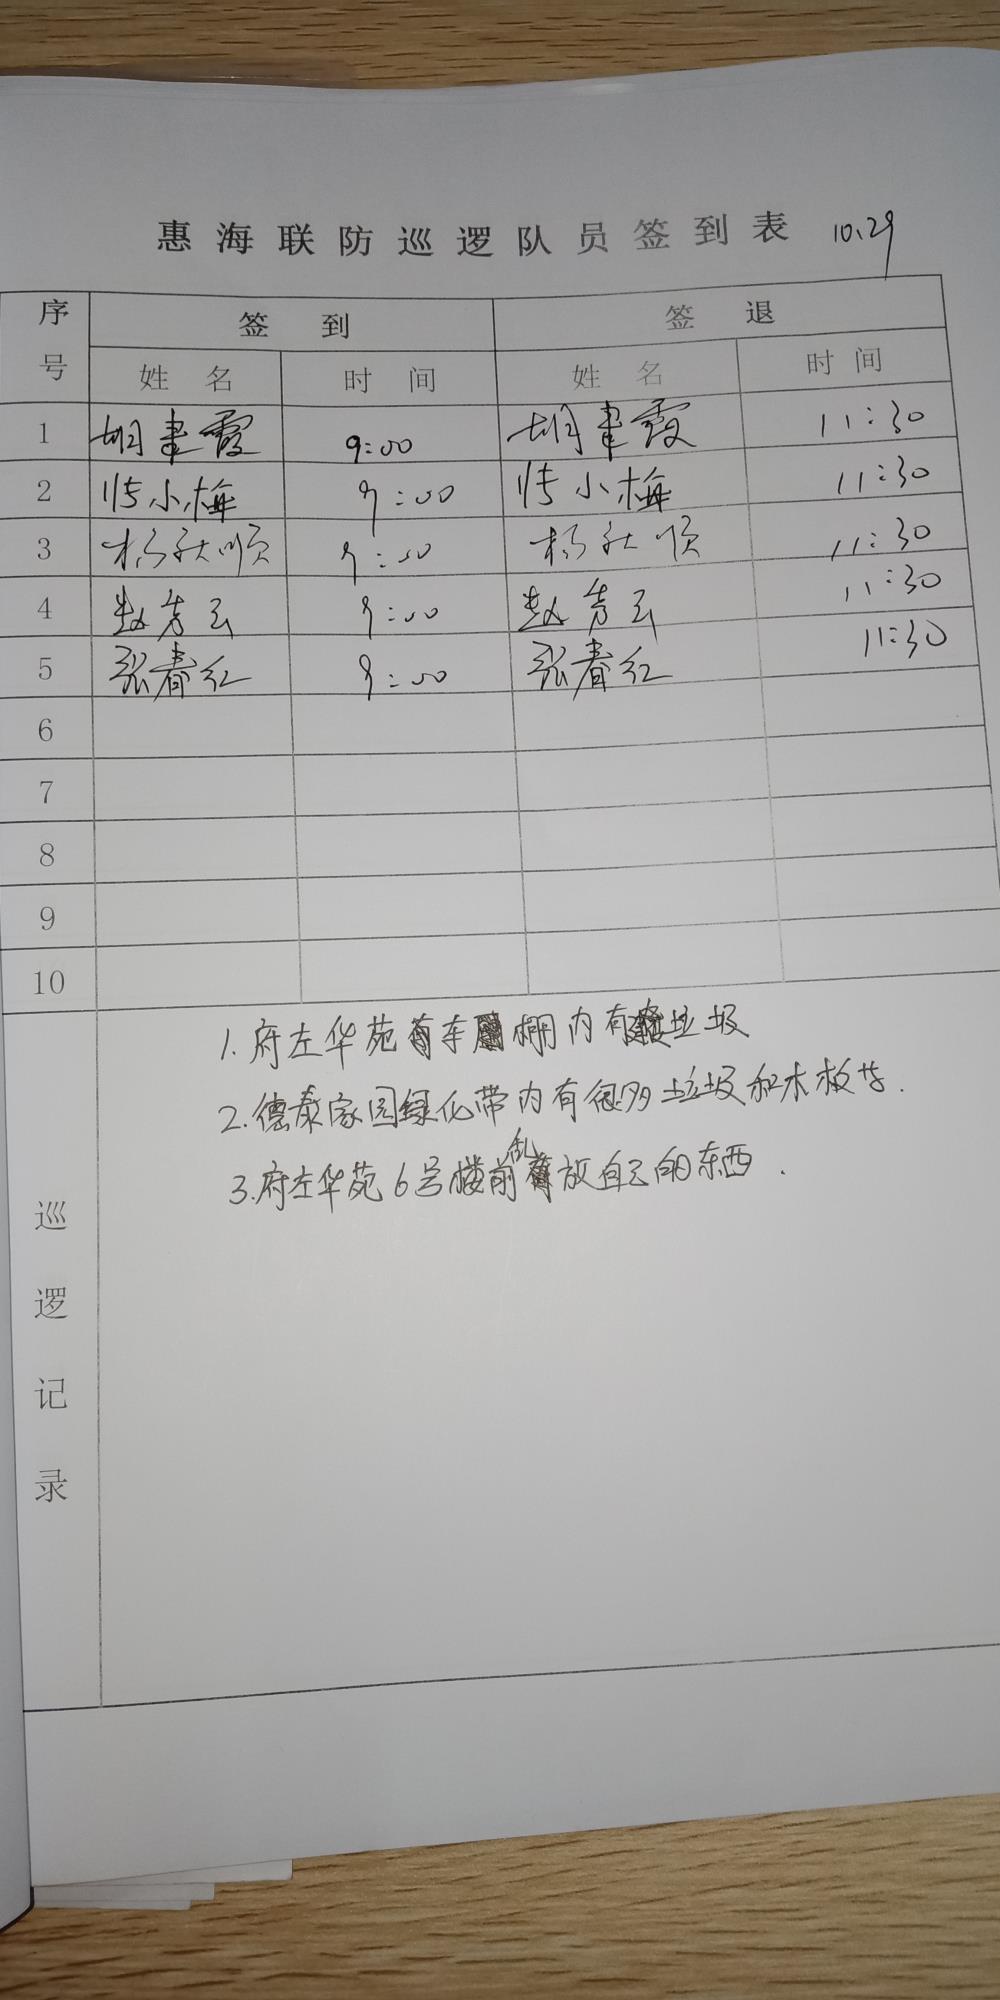 惠海联防巡逻队员签到表 10.29
序号 签到 签退
姓名 时间 姓名 时间
1 胡聿霞 9:00 胡聿霞 11:30
2 小梅 9:00 小梅 11:30
3 杨秋顺 9:00 杨秋顺 11:30
4 赵芳云 9:00 赵芳云 11:30
5 张春红 9:00 张春红 11:30
6
7
8
9
10
巡逻记录
1.府左华苑车棚内有垃圾
2.德泰家园绿化带内有很多垃圾和木板等.
3.府左华苑6号楼前乱放自己的东西.